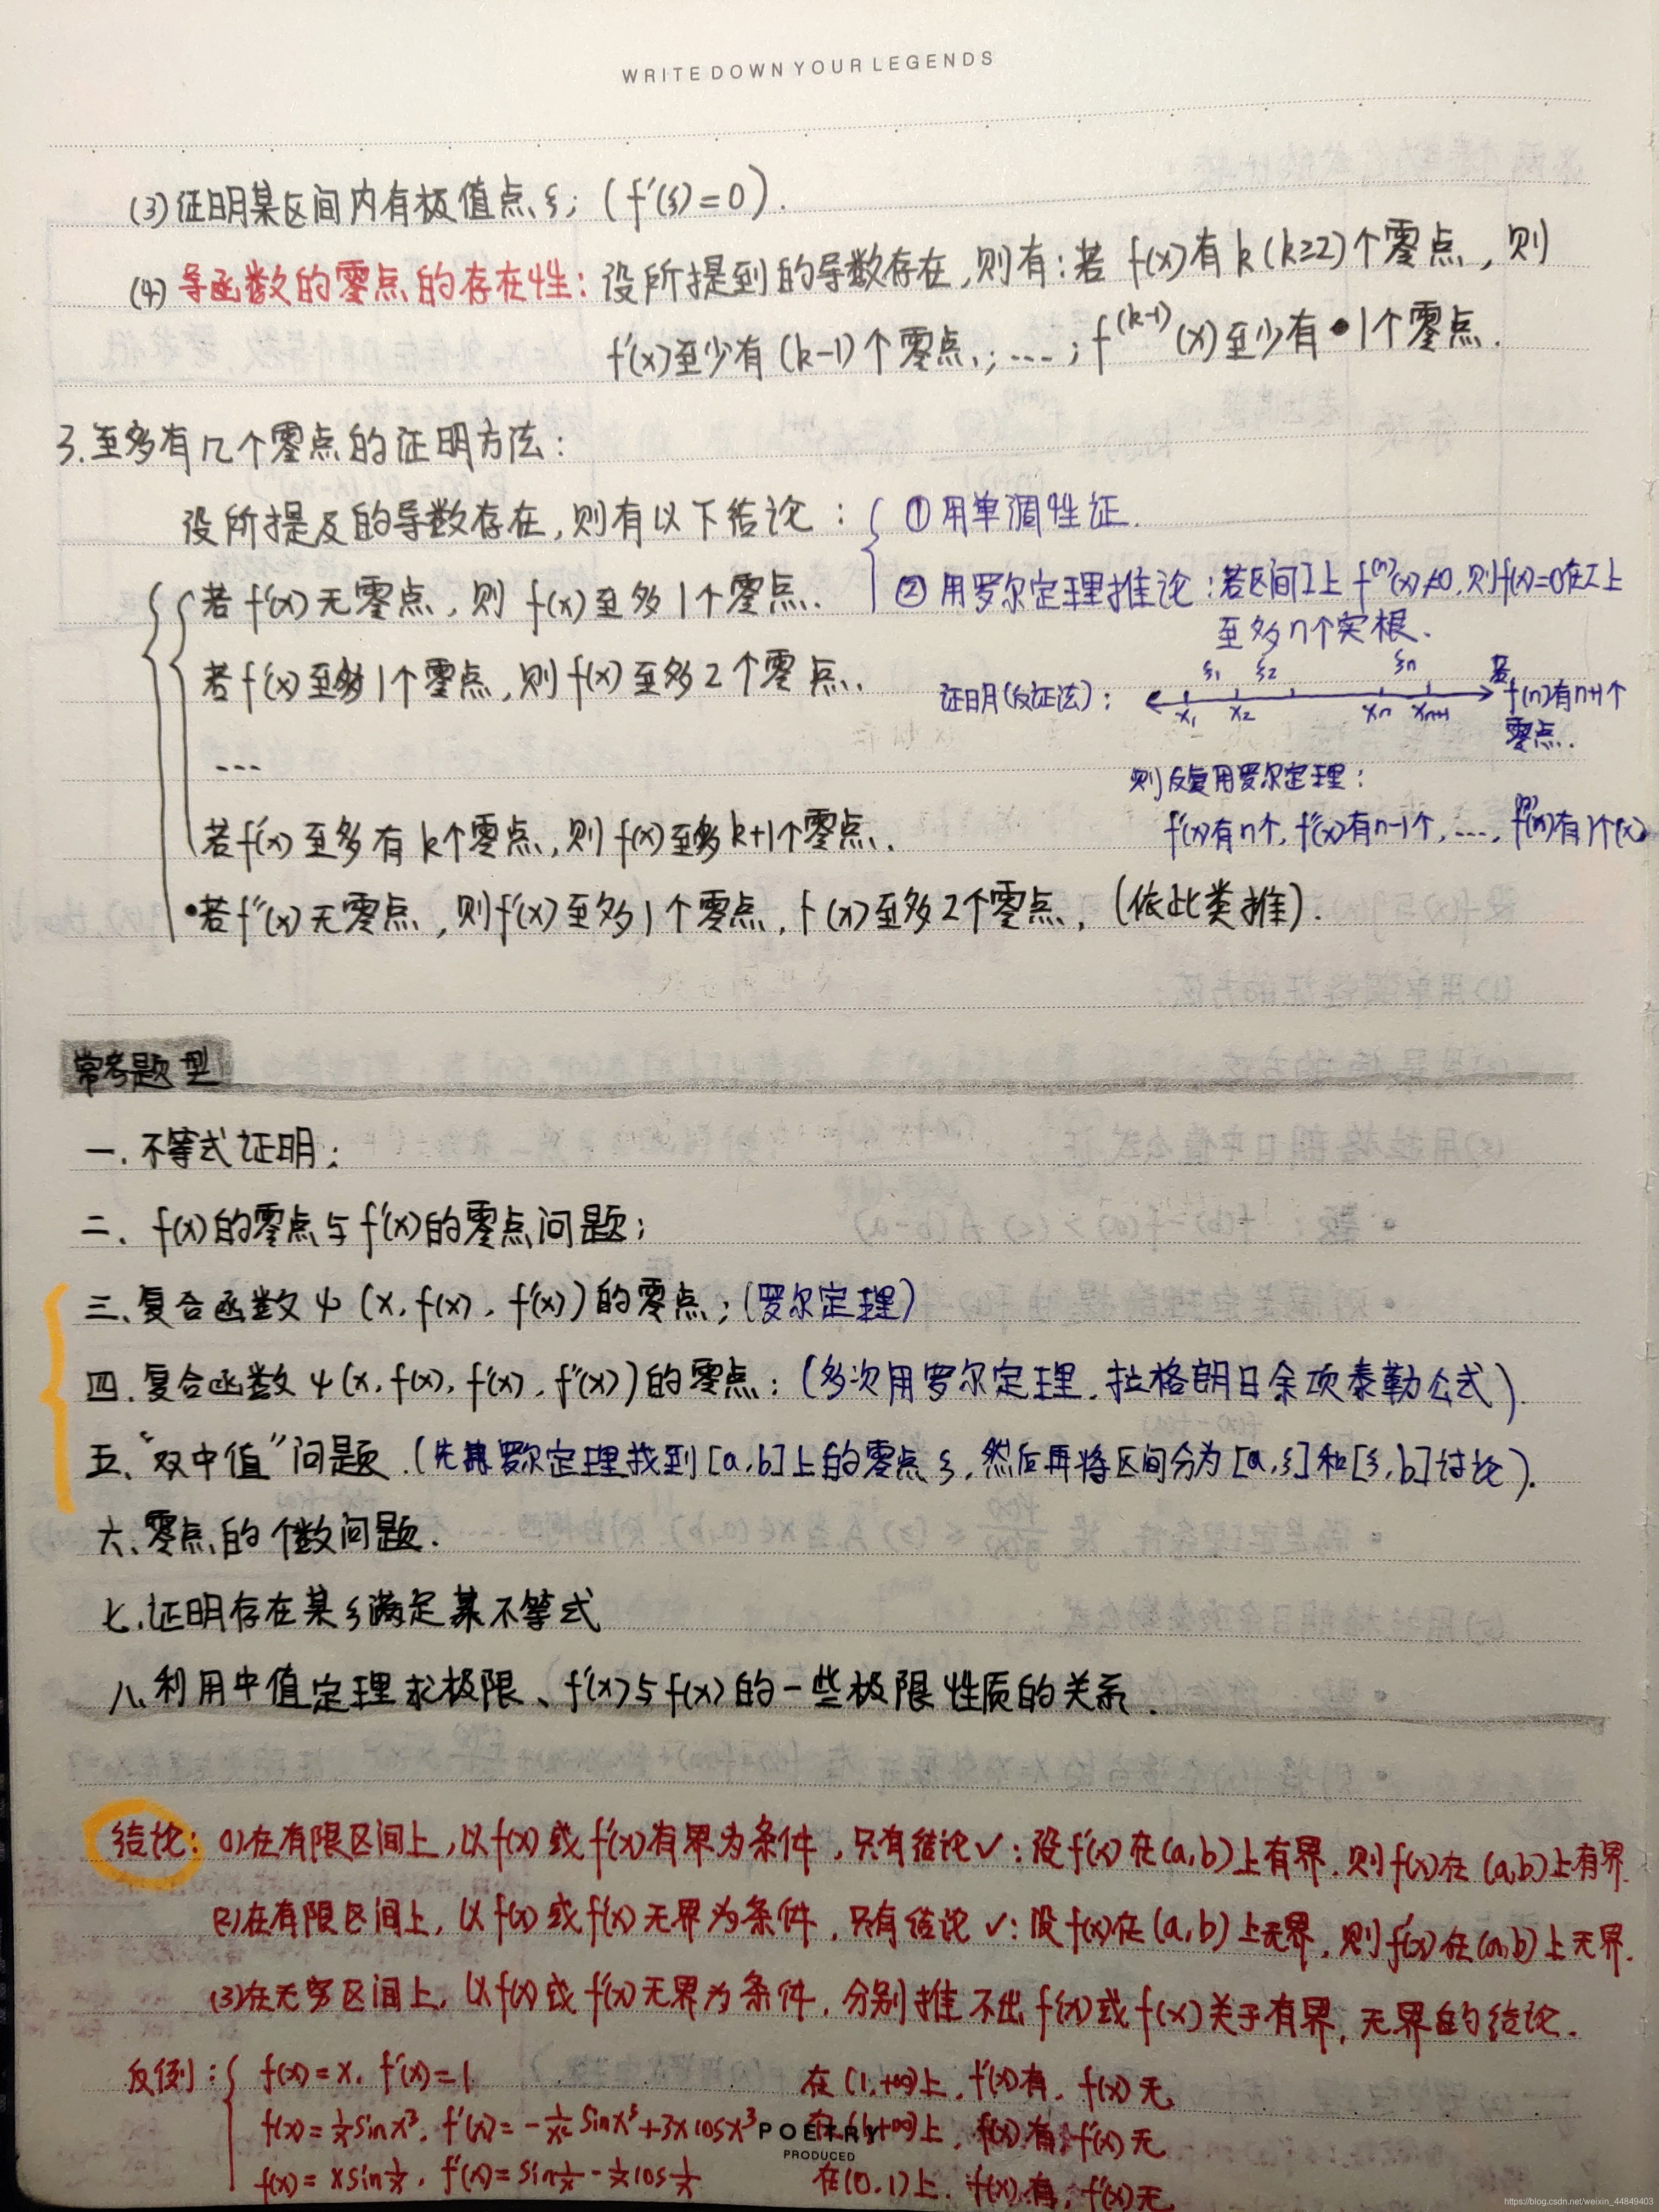 WRITE DOWN YOUR LEGENDS
(3) 证明某区间内有极值点ξ; (f'(ξ)=0).
(4) 导函数的零点的存在性: 设所提到的导数存在,则有:若 f(x)有k(k≥2)个零点,则
f'(x)至少有(k-1)个零点,; ...; f^(k-1)(x)至少有1个零点.
3.至多有几个零点的证明方法:
设所提及的导数存在,则有以下结论:
① 用单调性证.
② 用罗尔定理推论:若区间I上 f^(n)(x)≠0,则f(x)=0在I上
至多n个实根.
若 f'(x)无零点,则 f(x)至多1个零点.
若f'(x)至多1个零点,则f(x)至多2个零点.
...
若f'(x)至多有k个零点,则f(x)至多k+1个零点.
•若f''(x)无零点,则f'(x)至多1个零点,f(x)至多2个零点,(依此类推).
证明(反证法):
ξ1 ξ2 ξn
x1 x2 xn xn+1
若
f(n)有n+1个
零点.
则反复用罗尔定理:
f'(x)有n个, f''(x)有n-1个, ...., f^(n)(x)有1个(x)
常考题型
一.不等式证明;
二. f(x)的零点与f'(x)的零点问题;
三.复合函数ψ(x,f(x),f'(x))的零点;(罗尔定理)
四.复合函数ψ(x,f(x),f'(x),f''(x))的零点;(多次用罗尔定理.拉格朗日余项泰勒公式)
五."双中值"问题.(先用罗尔定理找到[a,b]上的零点ξ,然后再将区间分为[a,ξ]和[ξ,b]讨论).
六.零点的个数问题.
七.证明存在某ξ满足某不等式
八.利用中值定理求极限、f'(x)与f(x)的一些极限性质的关系.
结论: (1)在有限区间上,以f(x)或f'(x)有界为条件,只有结论✓:设f'(x)在(a,b)上有界.则f(x)在(a,b)上有界.
(2)在有限区间上,以f(x)或f'(x)无界为条件,只有结论✓:设f(x)在(a,b)上无界,则f'(x)在(a,b)上无界.
(3)在无穷区间上,以f(x)或f'(x)无界为条件,分别推不出f'(x)或f(x)关于有界,无界的结论.
反例: f(x)=x, f'(x)=1 在(1,+∞)上, f'(x)有, f(x)无.
f(x)=1/x sinx³, f'(x)=-1/x² sinx³+3xcosx³ 在(1,+∞)上, f(x)有, f'(x)无
f(x)=xsin1/x, f'(x)=sin1/x-1/x cos1/x 在(0,1)上, f(x)有, f'(x)无
POETRY
PRODUCED
https://blog.csdn.net/weixin_44849403